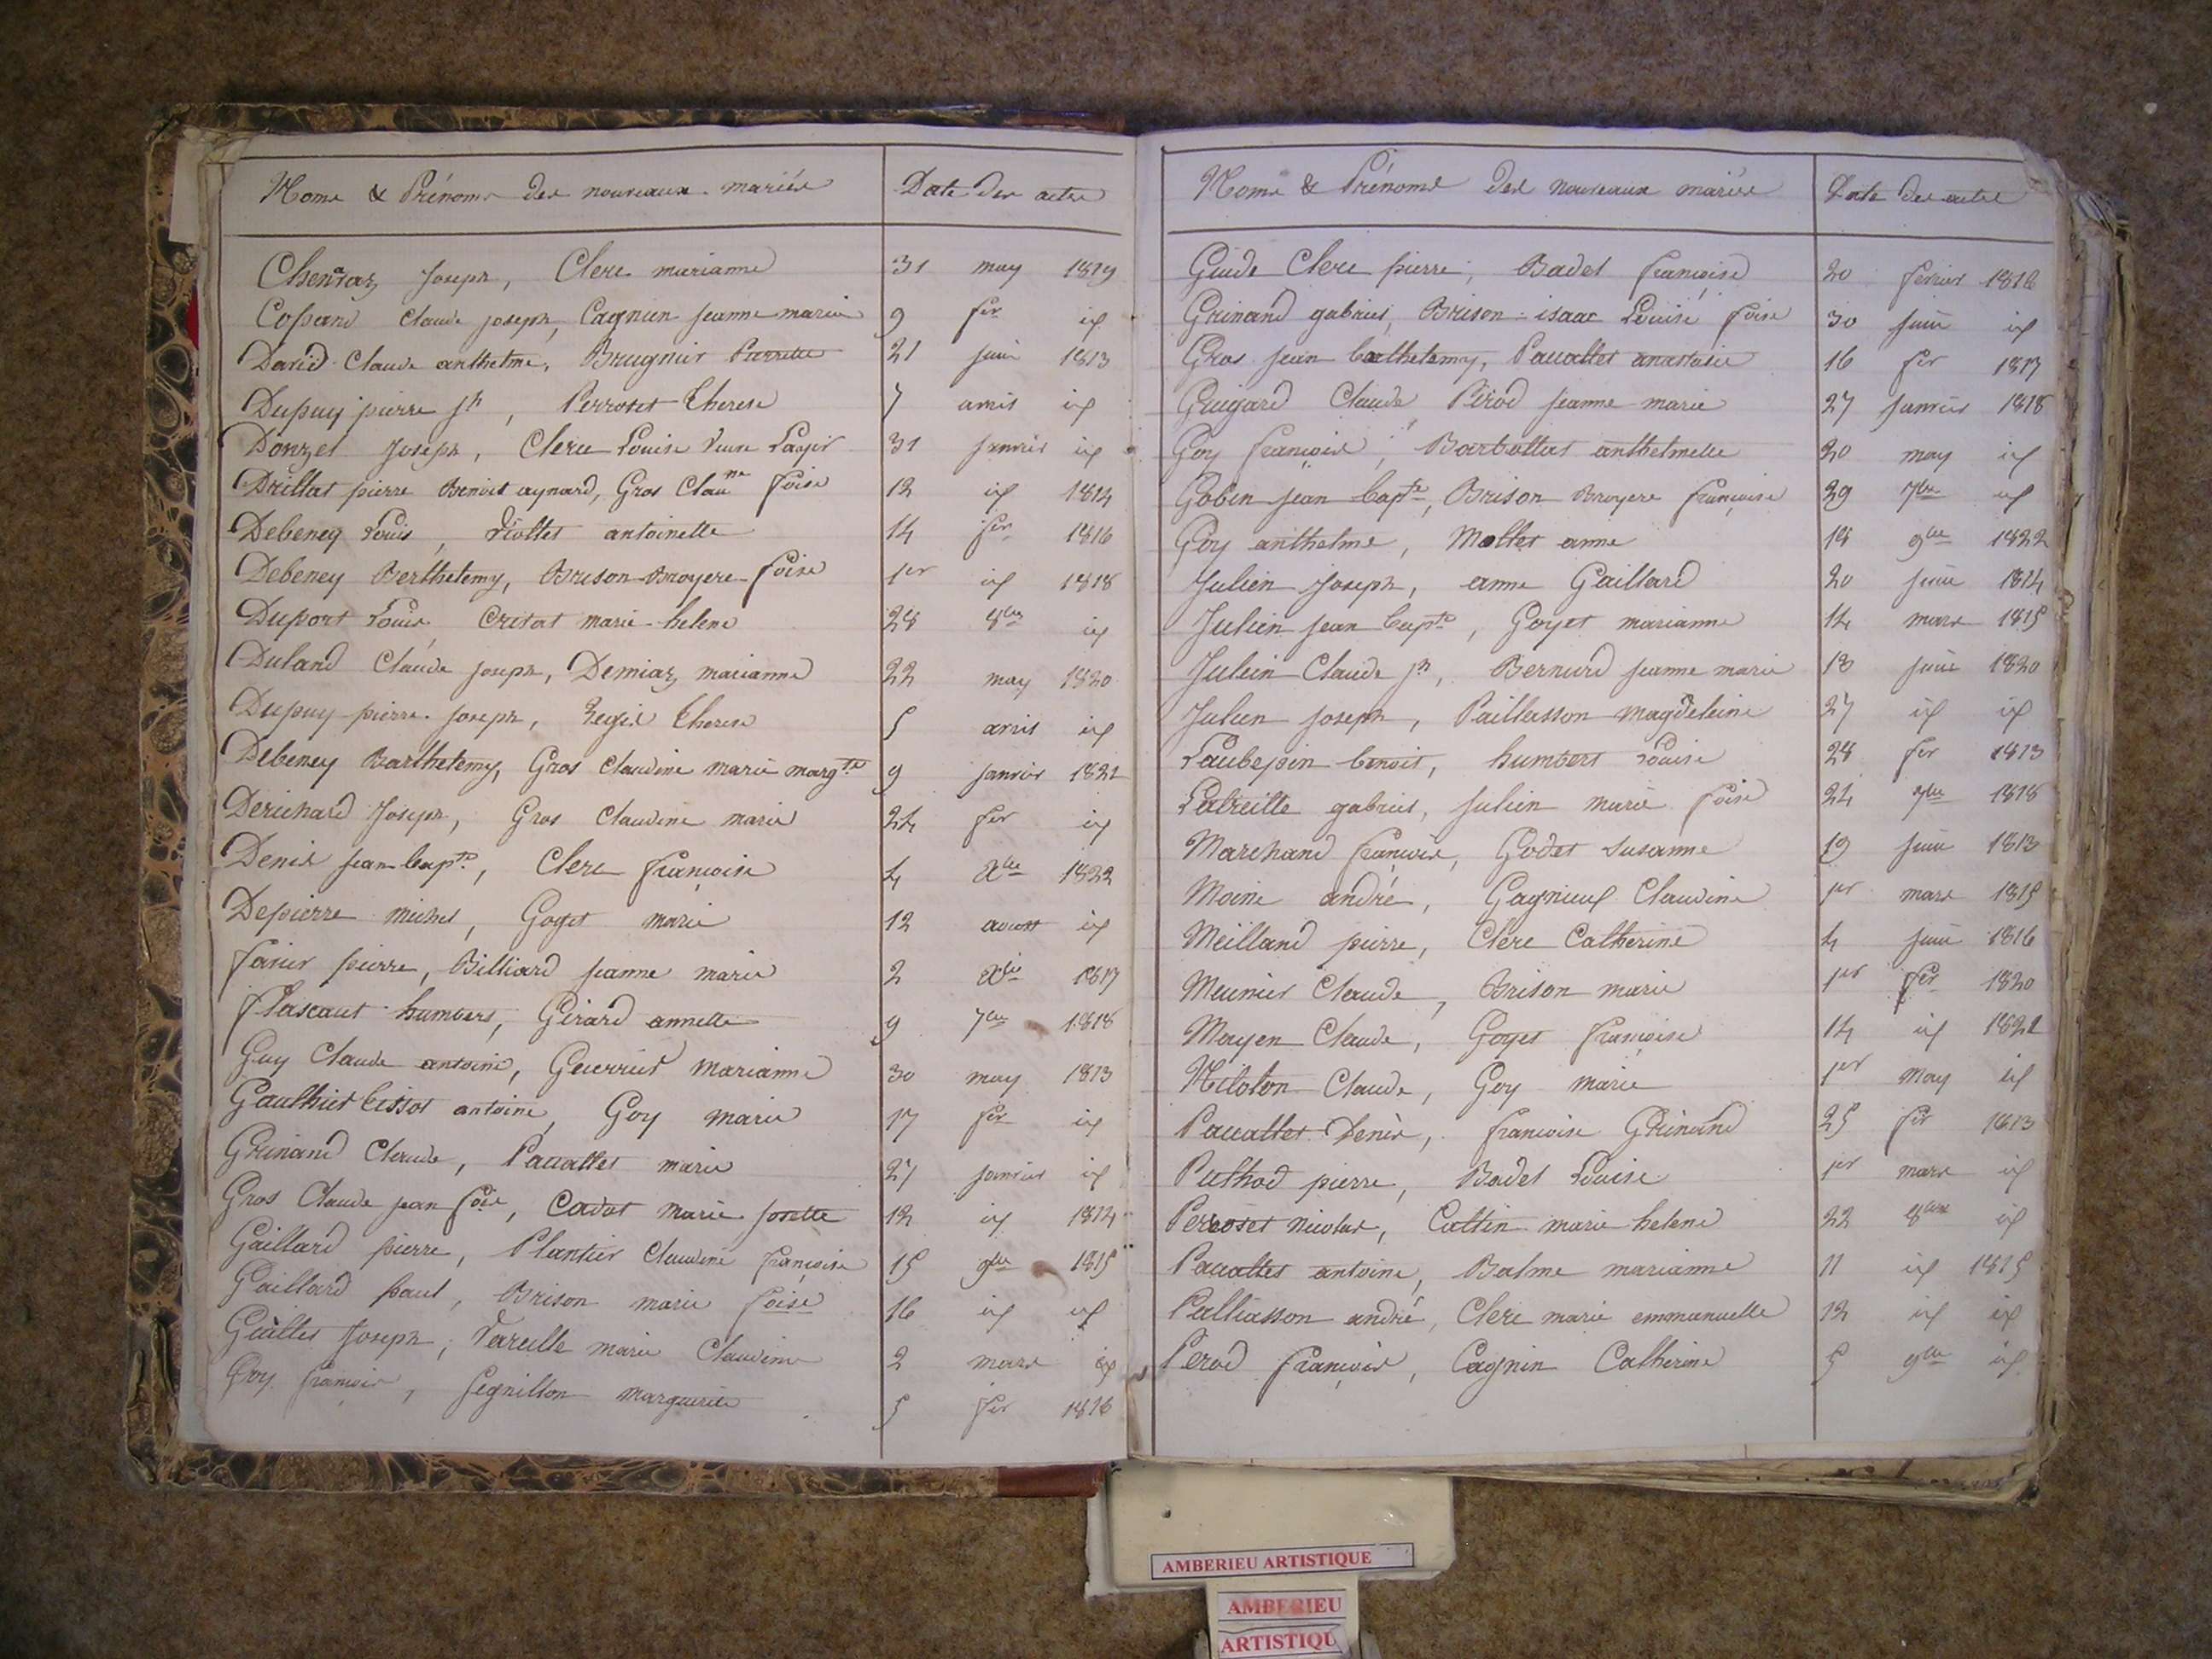 Noms & Prénoms des nouveaux mariés Date des actes
Chenavaz Joseph, Clerc marianne 31 may 1819
Cossand Claude joseph, Cagnin jeanne marie 9 fer id
David Claude anthelme, Brugnier Pierrette 21 juin 1813
Dupuy pierre jh, Perroset Therese 7 avril id
Donzel Joseph, Clerc Louise veuve Layer 31 janvier id
Drillat pierre Benoit aynard, Gros Claune foise 12 id 1814
Debeney Louis, Viollet antoinette 14 fer 1816
Debeney Berthelemy, Brison-Broyere foise 1er id 1818
Duport Louis Cretat marie-helene 28 8bre id
Duland Claude joseph, Demiaz marianne 22 may 1820
Dupuy pierre joseph, Regis Therese 5 avril id
Debeney Barthelemy, Gros Claudine marie margte 9 janvier 1821
Derichard Joseph, Gros Claudine marie 24 fer id
Denis jean-bapte, Clerc françoise 4 Xbre 1822
Depierre michel, Goyet marie 12 avoust id
favier pierre, Billiard jeanne marie 2 Xbre 1817
flascaut humbert, Girard annette 9 7bre 1818
Guy Claude antoine, Geurrier Marianne 30 may 1813
Gauthier bissot antoine, Goy marie 17 fer id
Grinand Claude, Pacallet marie 27 janvier id
Gros Claude jean foise, Cadot marie josette 12 id 1814
Gaillard pierre, Plantier Claudine françoise 15 9bre 1815
Gaillard paul, Brison marie foise 16 id id
Giallet Joseph, Vareille marie Claudine 2 mars id
Goy françois, Segnillon marguerite 5 fer 1816
Noms & Prénoms des nouveaux mariés Date des actes
Guide Clerc pierre, Badel françoise 20 fevrier 1816
Grinand gabriel, Brison-isaac Louise foise 30 juin id
Gros jean bathelemy, Pacallet anastasie 16 fer 1817
Guigard Claude Pérod jeanne marie 27 janvier 1818
Goy françois, Barbollat anthelmette 20 may id
Gobin jean bapte, Brison Broyere françoise 29 7bre id
Goy anthelme, Mollet anne 18 9bre 1822
Julien Joseph, anne Gaillard 20 juin 1814
Julien jean bapte, Goyet marianne 14 mars 1815
Julien Claude jh, Bernard jeanne marie 18 juin 1820
Julien joseph, Paillasson magdeleine 27 id id
Laubepin benoit, humbert Louise 28 fer 1813
Latreille gabriel, julien marie foise 24 7bre 1818
Marchand françois, Godet Susanne 19 juin 1813
Moine andré, Gagnieux Claudine 1er mars 1815
Meilland pierre, Clerc Catherine 4 juin 1816
Meunier Claude, Brison marie 1er fer 1820
Moyen Claude, Goyet françoise 14 id 1821
Miloton Claude, Goy marie 1er may id
Pacallet Denis, francoise Grinand 25 fer 1813
Pathod pierre, Badel Louise 1er mars id
Perroset nicolas, Cattin marie helene 22 8bre id
Pacallet antoine, Balme marianne 11 id 1815
Palliasson andré, Clerc marie emmanuelle 12 id id
Perod françois, Cagnin Catherine 5 9bre id
AMBERIEU ARTISTIQUE
AMBERIEU
ARTISTIQU